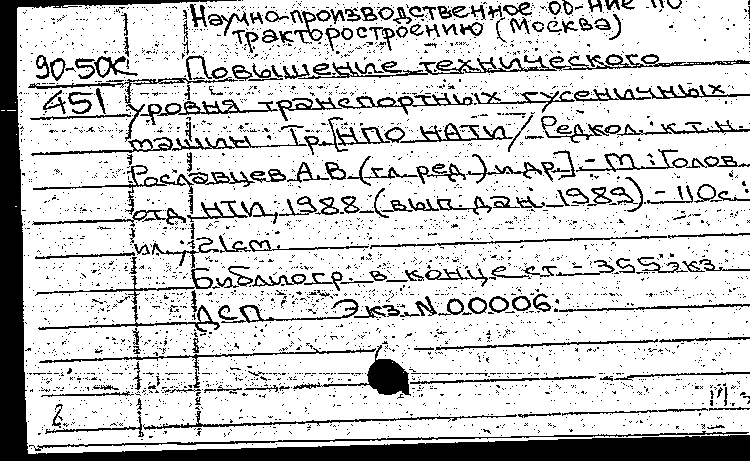 Научно-производственное об-ние по
тракторостроению (Москва)
90-50к Повышение технического
451 уровня транспортных гусеничных
машин : Тр. [НПО НАТИ / Редкол.: к.т.н.
Рославцев А.В. (гл. ред.) и др.] – М : Голов.
отд. НТИ, 1988 (вып. дан. 1989). – 110 с. :
ил. ; 21 см.
Библиогр. в конце ст. – 355 экз.
ДСП. Экз. N 00006.